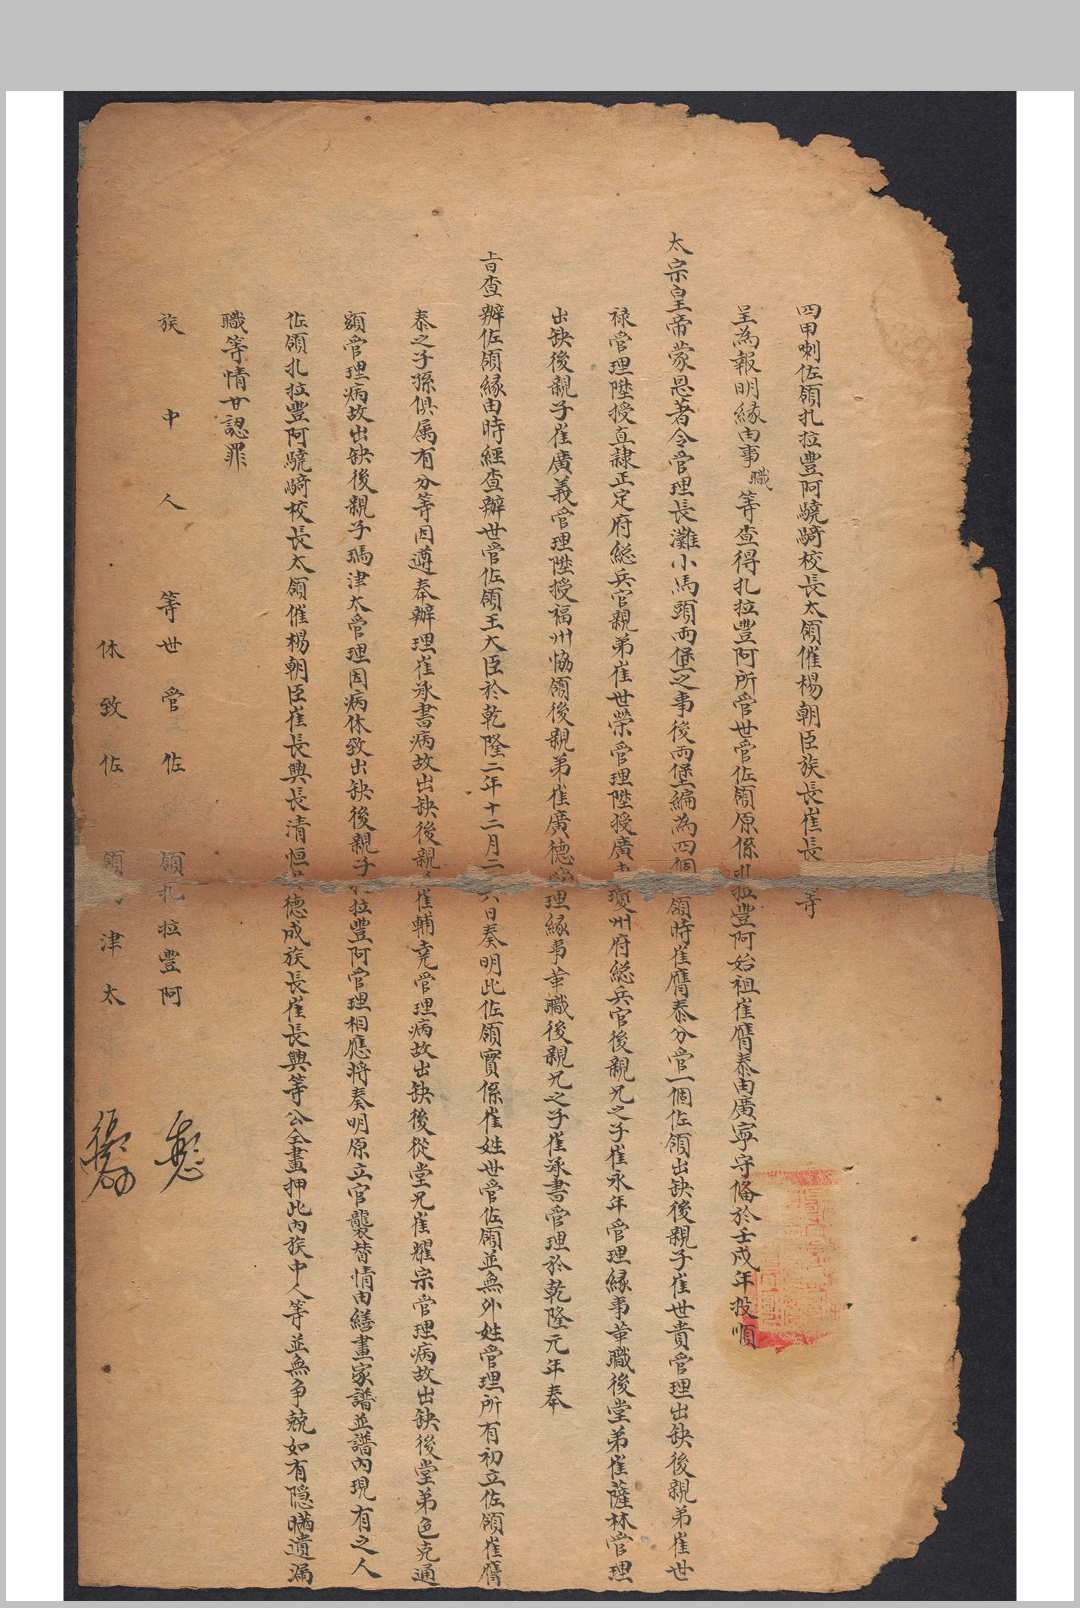 四甲喇佐領扎拉豐阿驍騎校長太領催楊朝臣族長崔長 等
呈為報明緣由事職等查得扎拉豐阿所管世管佐領原係扎拉豐阿始祖崔膺泰由廣寧守備於壬戌年投順
太宗皇帝蒙恩著令管理長灘小馬頭兩堡之事後兩堡編為四個 領時崔膺泰分管一個佐領出缺後親子崔世貴管理出缺後親弟崔世
祿管理陞授直隷正定府総兵官親弟崔世榮管理陞授廣 瓊州府総兵官後親兄之子崔永年管理緣事革職後堂弟崔薩林管理
出缺後親子崔廣義管理陞授福州協領後親弟崔廣德 理緣事革職後親兄之子崔泳書管理於乾隆元年奉
旨查辦佐領緣由時經查辦世管佐領王大臣於乾隆二年十二月二 六日奏明此佐領實係崔姓世管佐領並無外姓管理所有初立佐領崔膺
泰之子孫俱属有分等因遵奉辦理崔泳書病故出缺後親 崔輔堯管理病故出缺後從堂兄崔耀宗管理病故出缺後堂弟色克通
額管理病故出缺後親子瑪津太管理因病休致出缺後親子扎拉豐阿管理相應将奏明原立官襲替情由繕畫家譜並譜內現有之人
佐領扎拉豐阿驍騎校長太領催楊朝臣崔長興長清恒 德成族長崔長興等公仝畫押此內族中人等並無争競如有隐瞞遺漏
職等情甘認罪
族中人等世管佐領扎拉豐阿
休致佐領 津太